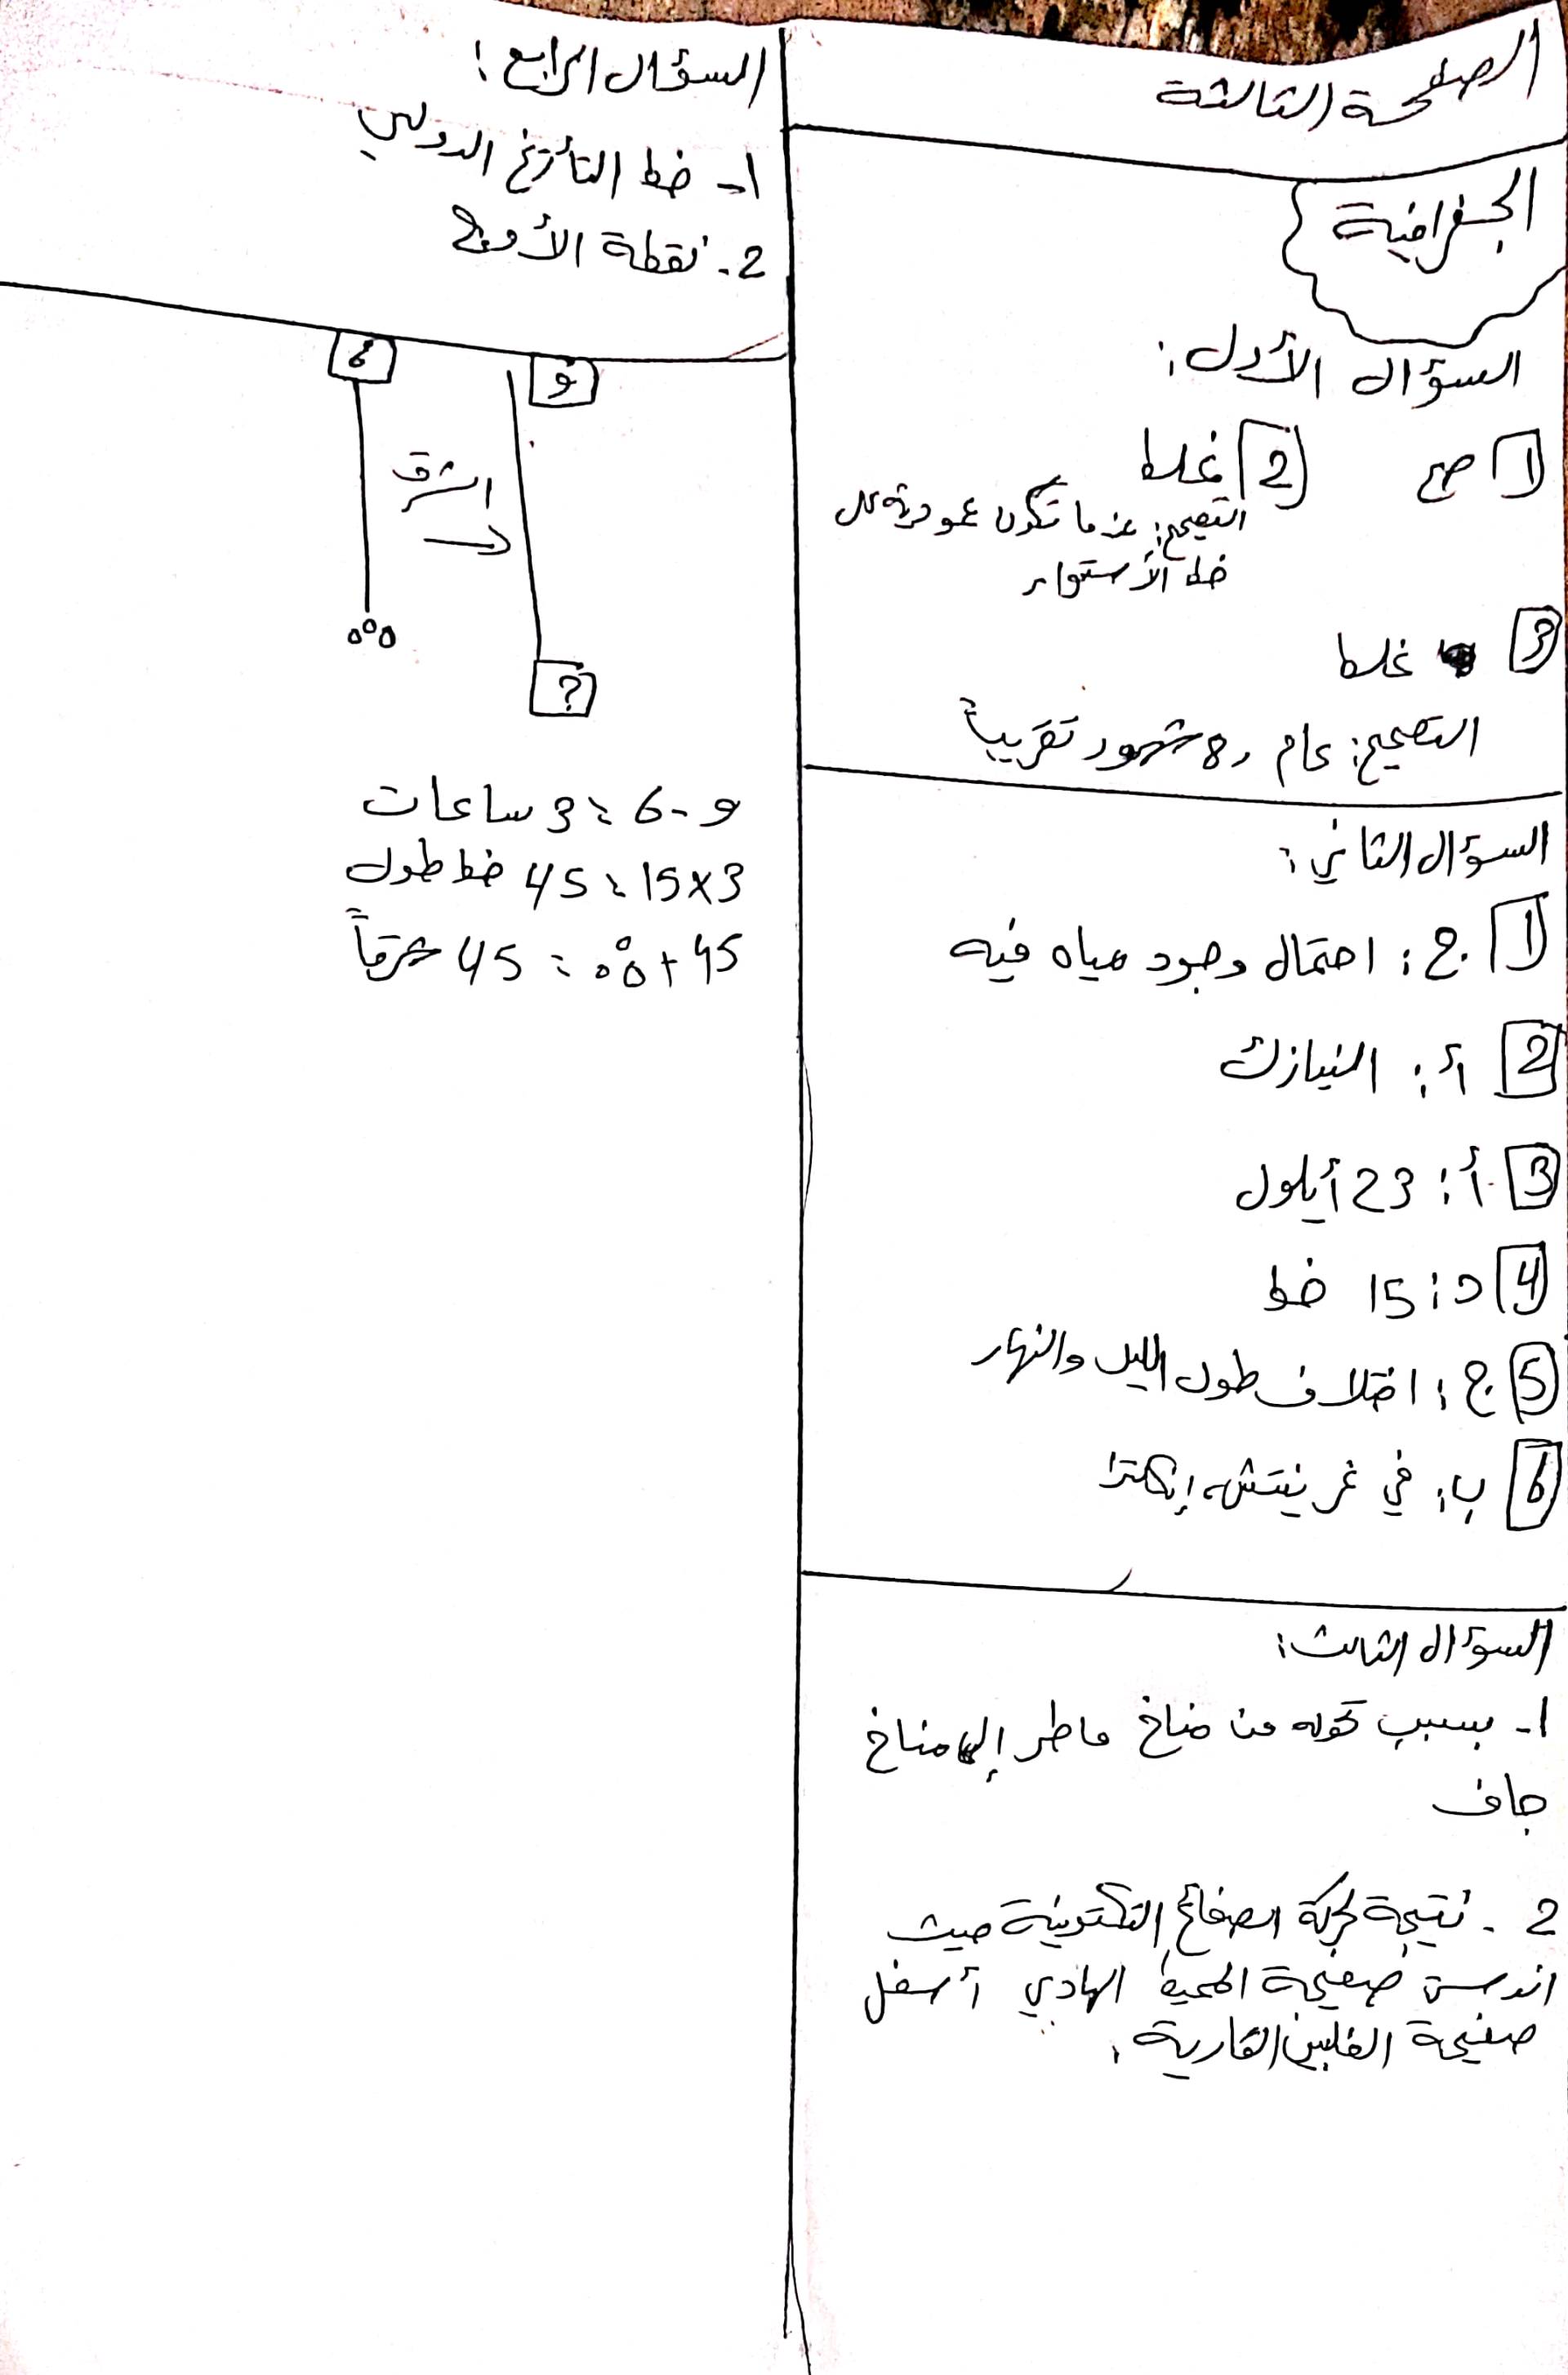 الصفحة الثالثة
الجغرافية
السؤال الأول:
1 صح
2 غلط
التصحيح: عندما تكون عمودية على
خط الأستواء
3 غلط
التصحيح: عام و8 شهور تقريباً
السؤال الثاني:
1 ج: احتمال وجود مياه فيه
2 أ: النيازك
3 أ: 23 أيلول
4 د: 15 خط
5 ج: اختلاف طول الليل والنهار
6 ب: في غرينتش، إنكلترا
السؤال الثالث:
1- بسبب تحوله من مناخ ماطر إلى مناخ
جاف
2- نتيجة لحركة الصفائح التكتونية حيث
اندست صفيحة المحيط الهادي أسفل
صفيحة الفلبين القارية.
السؤال الرابع:
1- خط التأريخ الدولي
2- نقطة الأوج
6
9
الشرق
0°0
?
9-6=3 ساعات
15×3=45 خط طول
45+0°0=45 شرقاً